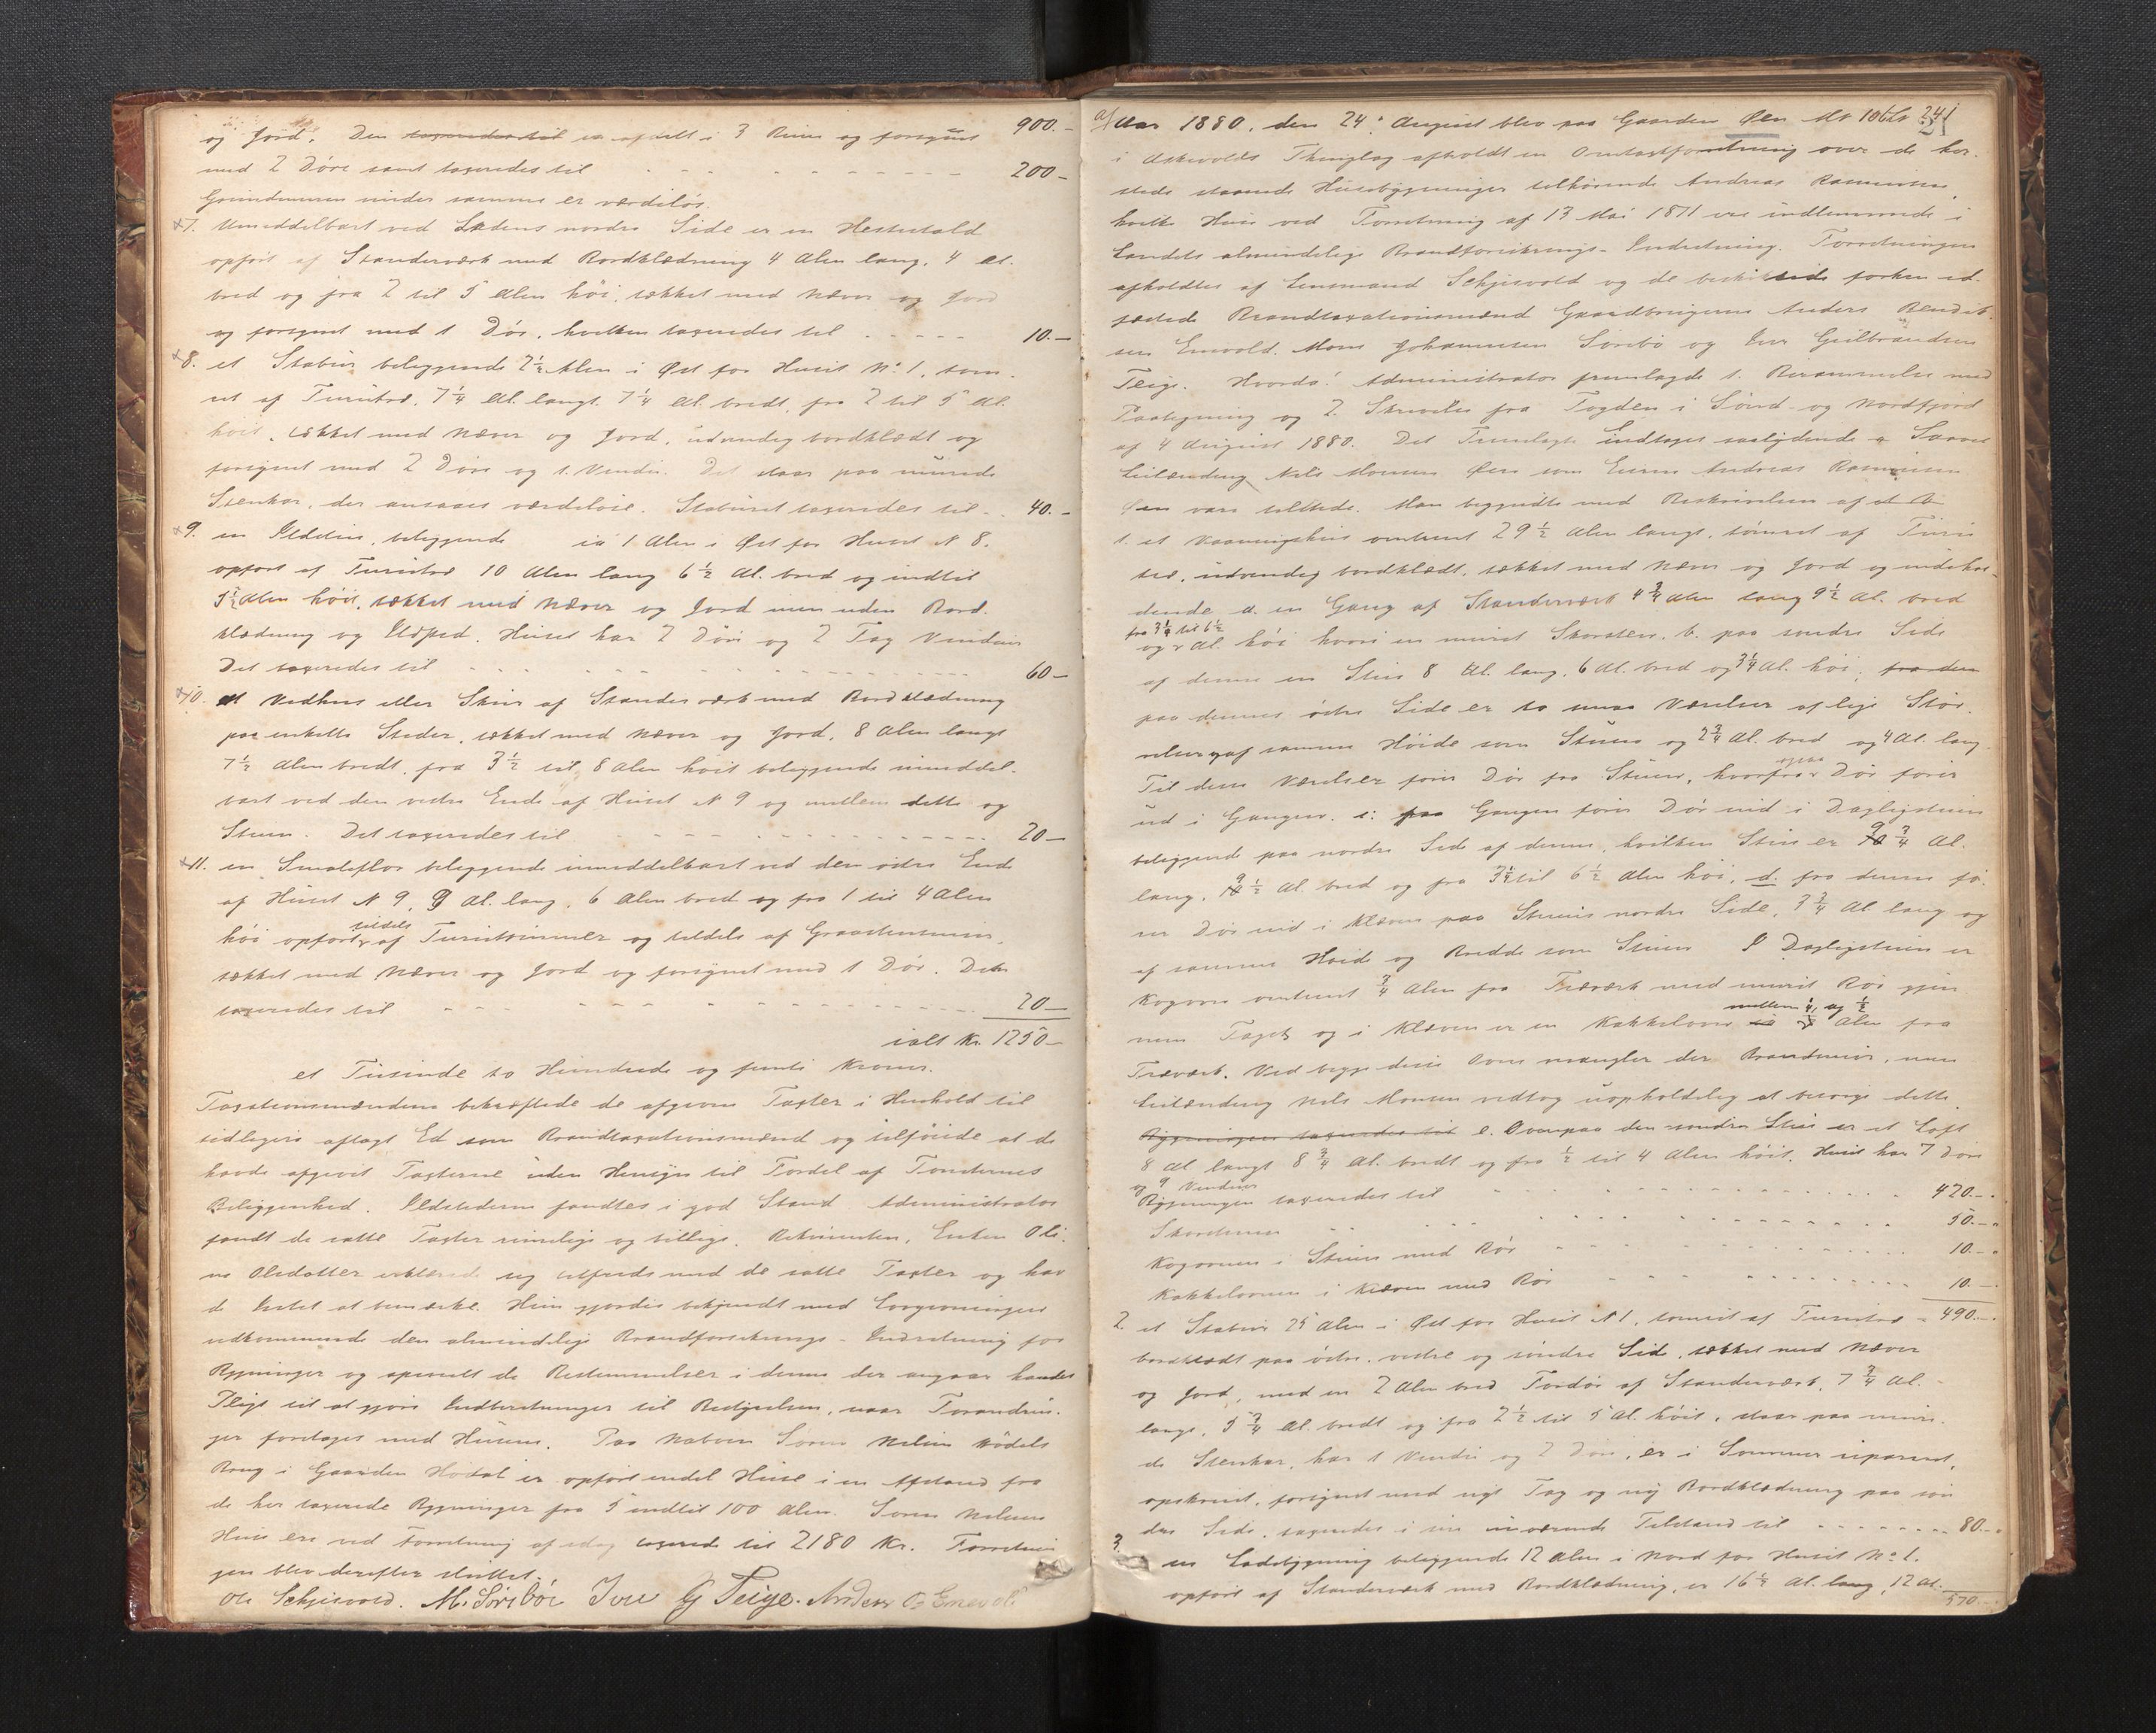 og Jord. Den taxeredes til er afdelt i 3 Rum og forsynet 900.-
med 2 Døre samt taxeredes til - - - - - - 200-
Grundmuren under samme er værdiløs.
×7. Umiddelbart ved Ladens nordre Side er en Hestestald
opført af Standerværk med Bordklædning 4 Alen lang, 4 Al.
bred og fra 2 til 5 Alen høi, tækket med Næver og Jord
og forsynet med 1 Dør, hvilken taxeredes til - - - - 10.-
×8. et Stabur beliggende 2½ Alen i Øst for Huset No 1, tøm-
ret af Furutræ, 7¼ Al. langt, 7¼ Al. bredt, fra 2 til 5 Al.
høit, tækket med Næver og Jord, udvendig bordklædt og
forsynet med 2 Døre og 1 Vindu. Det staar paa murede
Stenkar, der ansaaes værdiløse. Staburet taxeredes til - 40.-
×9. en Ildstue, beliggende ca 1 Alen i Øst for Huset N 8.
opført af Furutræ 10 Alen lang 6½ Al. bred og indtil
5½ Alen høit, tækket med Næver og Jord men uden Bord-
klædning og Ildsted. Huset har 2 Døre og 2 Fag Vinduer
Det taxeredes til - - - - - - - 60-
×10. et Vedhus eller Skur af Standerværk med Bordklædning
paa enkelte Steder, tækket med Næver og Jord, 8 Alen langt
7½ Alen bredt, fra 3½ til 8 Alen høit beliggende umiddel-
bart ved den vestre Ende af Huset N 9 og mellem dette og
Stuen. Det taxeredes til - - - - - - - 20-
×11. en Smaleflor beliggende umiddelbart ved den østre Ende
af Huset N 9, 9 Al. lang, 6 Alen bred og fra 1 til 4 Alen
høi opført tildels af Furutømmer og tildels af Graastensmur,
tækket med Næver og Jord og forsynet med 1 Dør. Den
taxeredes til - - - - - - - 20-
ialt Kr. 1250-
et Tusinde to Hundrede og femti Kroner.
Taxationsmændene bekræftede de afgivne Taxter i Henhold til
tidligere aflagt Ed som Brandtaxationsmænd og tilføiede at de
havde afgivet Taxterne uden Hensyn til Fordel af Tomternes
Beliggenhed. Ildstederne fandtes i god Stand. Administrator
fandt de satte Taxter rimelige og billige. Rekvirenten, Enken Oli-
ne Olsdatter erklærede sig tilfreds med de satte Taxter og hav-
de Intet at bemærke. Hun gjordes bekjendt med Lovgivningen
vedkommende den almindelige Brandforsikrings-Indretning for
Bygninger og specielt de Bestemmelser i denne der angaar hendes
Pligt til at gjøre Indberetninger til Bestyrelsen, naar Forandrin-
ger foretages med Husene. Paa Naboen Søren Nelsen Hødals
Brug i Gaarden Hødal er opført endel Huse i en Afstand fra
de her taxerede Bygninger fra 5 indtil 100 Alen. Søren Nelsens
Huse ere ved Forretning af idag taxerede til 2180 Kr. Forretnin-
gen blev derefter sluttet.
Ole Schjesvold. M. Sørebøe Iver G Teige. Anders B. Enevold
af Aar 1880, den 24. August blev paa Gaarden Øen Mt 106 Ls 241
i Askevolds Thinglag afholdt en Omtaxtforretning over de her-
steds staaende Husebygninger tilhørende Andreas Rasmussen,
hvilke Huse ved Forretning af 13 Mai 1871 ere indlemmede i
Landets almindelige Brandforsikrings-Indretning. Forretningen
afholdtes af Lensmand Schjesvold og de beskikkede forhen ed-
fæstede Brandtaxationsmænd Gaardbrugerne Anders Bendik-
sen Enevold, Mons Johannessen Sørebø og Iver Gulbrandsen
Teige. Hvorda: Administrator fremlagde 1. Berammelse med
Paategning og 2. Skrivelse fra Fogden i Sønd- og Nordfjord
af 4 August 1880. Det Fremlagte indtages saalydende a Saavel
Leilænding Nils Monsen Øen som Eieren Andreas Rasmussen
Øen vare tilstede. Man begyndte med Beskrivelsen af
1. et Vaaningshus omtrent 29½ Alen langt, tømret af Furu-
træ, udvendig bordklædt, tækket med Næver og Jord og indehol-
dende a. en Gang af Standerværk 4¾ Alen lang 9½ Al. bred
og fra 3¼ til 6½ Al. høi hvori en muret Skorsten. b. paa søndre Side
af denne en Stue 8 Al. lang, 6 Al. bred og 3¼ Al. høi; fra den
paa dennes østre Side er to smaa Værelser af lige Stør-
relse og af samme Høide som Stuen og 2¾ Al. bred og 4 Al. lang.
Til disse Værelser fører Dør fra Stuen, hvorfra ogsaa Dør fører
ud i Gangen. c: fra Gangen fører Dør ind i Dagligstuen
beliggende paa nordre Side af denne, hvilken Stue er 9¾ Al.
lang, 9½ Al. bred og fra 3¼ til 6½ Alen høi, d. fra denne fø-
rer Dør ind i Kleven paa Stuens nordre Side, 3¾ Al lang og
af samme Høide og Bredde som Stuen. I Dagligstuen er
Kogovn omtrent ¾ Alen fra Træværk med muret Rør gjen-
nem Taget og i Kleven er en Kakkelovn mellem ¼ og ½ Alen fra
Træværk. Ved begge disse Ovne mangler der Brandmur, men
Leilænding Nils Monsen vedtog uopholdelig at besørge dette.
Bygningen taxeredes til e. Ovenpaa den søndre Stue er et Loft
8 Al langt 8¾ Al. bredt og fra ½ til 4 Alen høit. Huset har 7 Døre
og 9 Vinduer
Bygningen taxeredes til - - - - - 420.-
Skorstenen - - - - - 50.-
Kogovnen i Stuen med Rør - - - - - 10.-
Kakkelovnen i Kleven med Rør - - - - - 10.-
2. et Stabur 25 Alen i Øst for Huset N 1, tømret af Furutræ - 490.-
bordklædt paa østre, vestre og søndre Side, tækket med Næver
og Jord, med en 2 Alen bred Fordør af Standerværk, 7¾ Al.
langt, 5¾ Al. bredt og fra 2½ til 5 Al. høit, staar paa mure-
de Stenkar, har 1 Vindu og 2 Døre, er i Sommer repareret,
opskruet, forsynet med nyt Tag og ny Bordklædning paa søn-
dre Side, taxeredes i sin nuværende Tilstand til - - - - 80.-
3. en Ladebygning beliggende 12 Alen i Nord for Huset No 1.
opført af Standerværk med Bordklædning, er 16¼ Al. lang, 12 Al.
570.-